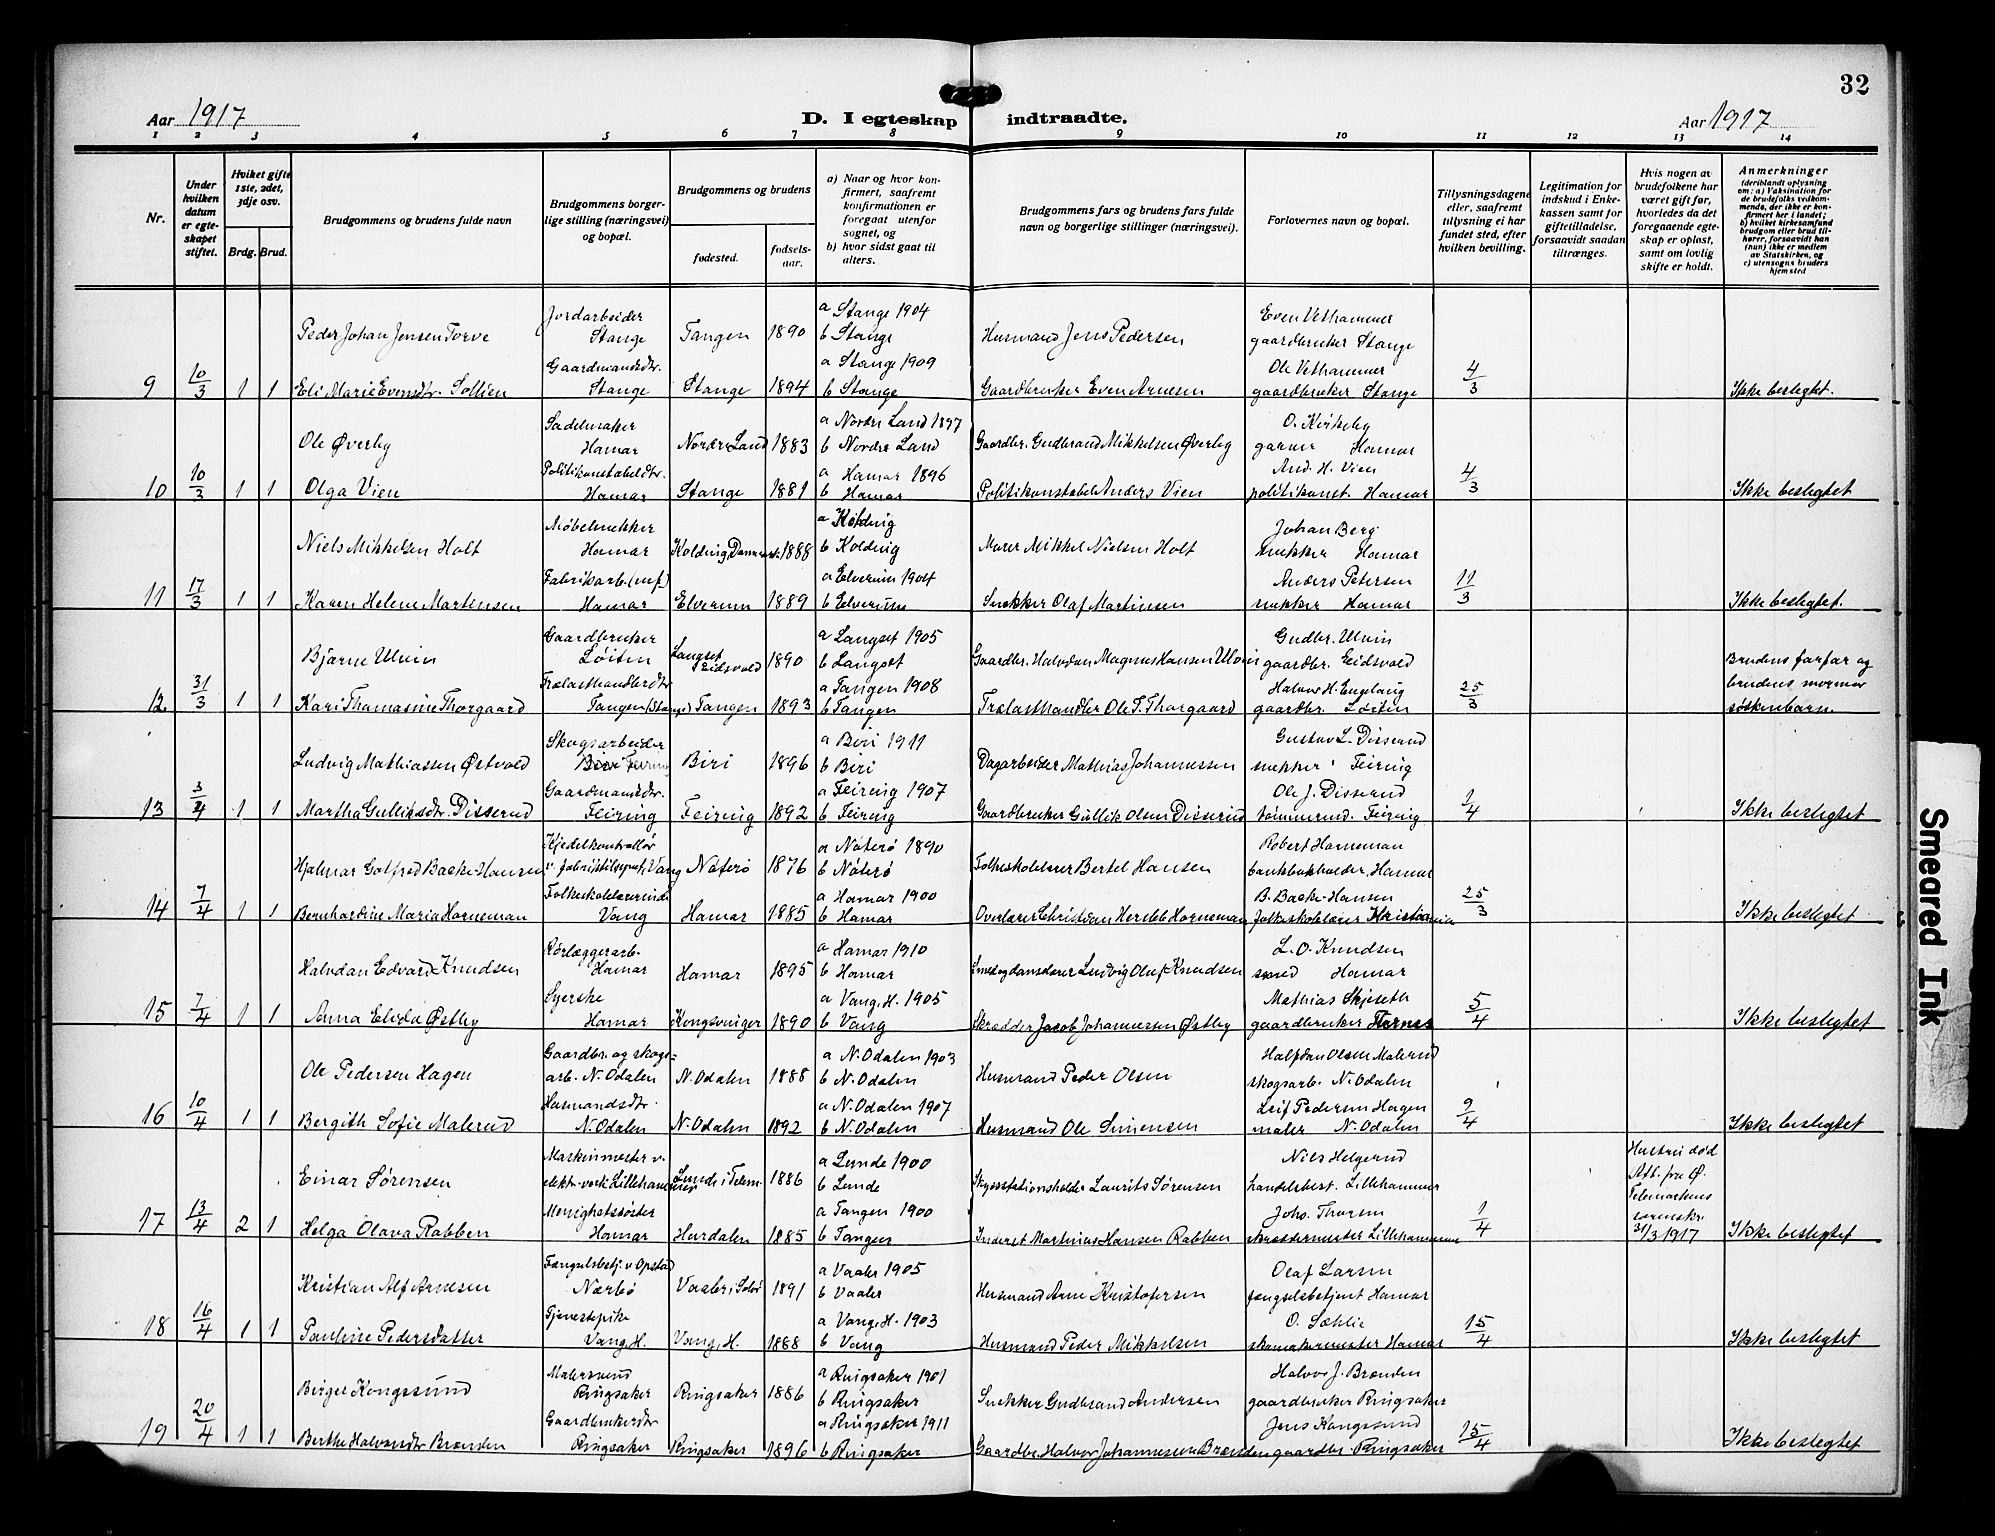 32
Aar 1917
D. I egteskap indtraadte.
Aar 1917
1 2 3 4 5 6 7 8 9 10 11 12 13 14
Nr.
Under hvilken datum er egteskapet stiftet.
Hvilket gifte 1ste, 2det, 3dje osv.
Brdg. Brud.
Brudgommens og brudens fulde navn
Brudgommens borgerlige stilling (næringsvei) og bopæl.
Brudgommens og brudens
fødested.
fødselsaar.
a) Naar og hvor konfirmert, saafremt konfirmationen er foregaat utenfor sognet, og
b) hvor sidst gaat til alters.
Brudgommens fars og brudens fars fulde navn og borgerlige stillinger (næringsvei).
Forlovernes navn og bopæl.
Tillysningsdagene eller, saafremt tillysning ei har fundet sted, efter hvilken bevilling.
Legitimation for indskud i Enkekassen samt for giftetilladelse, forsaavidt saadan tiltrænges.
Hvis nogen av brudefolkene har været gift før, hvorledes da det foregaaende egteskap er opløst, samt om lovlig skifte er holdt.
Anmerkninger
(deriblandt oplysning om: a) Vaksination for de brudefolks vedkommende, der ikke er konfirmert her i landet; b) hvilket kirkesamfund brudgom eller brud tilhører, forsaavidt han (hun) ikke er medlem av Statskirken, og c) utensogns bruders hjemsted
Peder Johan Jensen Torve Jordarbeider Stange Tangen 1890 a Stange 1904 b Stange Husmand Jens Pedersen Even Vethammer gaardbruker Stange
9 10/3 1 1 Eli Marie Evensdtr. Sollien Gaardmandsdtr. Stange Stange 1894 a Stange 1909 b Stange Gaardbruker Even Arnesen Ole Vethammer gaardbruker Stange 4/3 Ikke beslegtet.
Ole Øverby Sadelmaker Hamar Nordre Land 1883 a Nordre Land 1897 b Nordre Land Gaardbr. Gudbrand Mikkelsen Øverby O. Kirkeby garver Hamar
10 10/3 1 1 Olga Vien Politikonstabeldtr. Hamar Stange 1881 a Hamar 1896 b Hamar Politikonstabel Anders Vien And. H. Vien politikonst. Hamar 4/3 Ikke beslegtet
Niels Mikkelsen Holt Møbelsnekker Hamar Kolding, Danmark 1888 a Kolding b Kolding Murer Mikkel Nielsen Holt Johan Berg snekker Hamar
11 17/3 1 1 Karen Helene Martinsen Fabrikarb. Hamar Elverum 1889 a Elverum 1904 b Elverum Snekker Olaf Martinsen Anders Petersen snekker Hamar 11/3 Ikke beslegtet.
Bjarne Ulvin Gaardbruker Løiten Langset Eidsvold 1890 a Langset 1905 b Langset Gaardbr. Halvdan Magnus Hansen Ulvin Gudbr. Ulvin gaardbr. Eidsvold
12 31/3 1 1 Kari Thomasine Thorgaard Trælasthandlerdtr Tangen (Stange) Tangen 1893 a Tangen 1908 b Tangen Trælasthandler Ole T. Thorgaard Halvor H. Engelaug gaardbr. Løiten 25/3 Brudens farfar og brudens mormor søskenbarn
Ludvig Mathiassen Østvold Skogsarbeider Biri Feiring Biri 1896 a Biri 1911 b Biri Dagarbeider Mathias Johannessen Gustav L. Disserud snekker Feiring
13 3/4 1 1 Martha Gulliksdtr. Disserud Gaardmandsdtr. Feiring Feiring 1892 a Feiring 1907 b Feiring Gaardbruker Gullik Olsen Disserud Ole J. Disserud tømmermd. Feiring 1/4 Ikke beslegtet
Hjalmar Gotfred Backe-Hansen Kjedelkontrollør v. fabriktilsynet, Vang Nøterø 1876 a Nøterø 1890 b Nøterø Folkeskolelærer Bertel Hansen Robert Horneman bankbokholder, Hamar
14 7/4 1 1 Bernhardine Maria Horneman Folkeskolelærerinde Vang Hamar 1885 a Hamar 1900 b Hamar Overlærer Christian Hersleb Horneman B. Backe-Hansen folkeskolelærer Kristiania 25/3 Ikke beslegtet
Halvdan Edvard Knudsen Rørlæggerarb. Hamar Hamar 1895 a Hamar 1910 b Hamar Smed og danselærer Ludvig Olaf Knudsen L. O. Knudsen smed Hamar
15 7/4 1 1 Anna Elida Østby Syerske Hamar Kongsvinger 1890 a Vang, H. 1905 b Vang Skrædder Jacob Johannessen Østby Mathias Skjeseth gaardbruker Furnes 5/4 Ikke beslegtet
Ole Pedersen Hagen Gaardbr. og skogsarb. N. Odalen N. Odalen 1888 a N. Odalen 1903 b N. Odalen Husmand Peder Olsen Halfdan Olsen Malerud skogsarb. N. Odalen
16 10/4 1 1 Bergith Sofie Malerud Husmandsdtr. N. Odalen N. Odalen 1892 a N. Odalen 1907 b N. Odalen Husmand Ole Simensen Leif Pedersen Hagen maler N. Odalen 9/4 Ikke beslegtet
Einar Sørensen Maskinmester v. elektr. verk Lillehammer Lunde i Telem. 1886 a Lunde 1900 b Lunde Skysstationsholder Laurits Sørensen Nils Helgerud handelsbest. Lillehammer Hustru død Att. fra Ø. Telemarkens sorenskr. 31/3 1917
17 13/4 2 1 Helga Olava Rabben Menighetssøster Hamar Hurdalen 1885 a Tangen 1900 b Tangen Inderst Martinius Hansen Rabben Johs. Thorsen skræddermester Lillehammer 1/4 Ikke beslegtet
Kristian Alf Arnesen Fængselsbetj. v Opstad Nærbø Vaaler, Solør 1891 a Vaaler 1905 b Vaaler Husmand Arne Kristofersen Olaf Larsen fængselsbetjent Hamar
18 16/4 1 1 Pauline Pedersdatter Tjenestepike Vang, H. Vang, H. 1888 a Vang, H. 1903 b Vang Husmand Peder Mikkelsen O. Sæhlie skomakermester Hamar 15/4 Ikke beslegtet
Birger Kongssund Malersvend Ringsaker Ringsaker 1886 a Ringsaker 1901 b Ringsaker Snekker Gudbrand Andersen Halvor J. Brænden gaardbruker Ringsaker
19 20/4 1 1 Berthe Halvorsdtr Brænden Gaardbrukerdtr Ringsaker Ringsaker 1896 a Ringsaker 1911 b Ringsaker Gaardbr. Halvor Johannessen Brænden Jens Kongssund gaardbr. Ringsaker 15/4 Ikke beslegtet
Smeared Ink